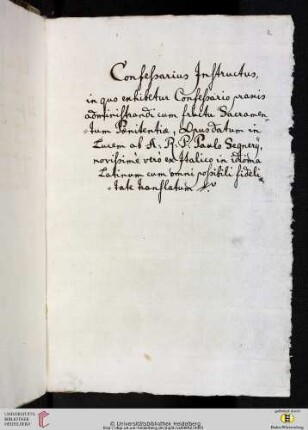 Confessarius Instructus,
in quo exhibetur Confessario praxis
administrandi cum fructu Sacramen-
-tum Pœnitentiæ, Opus datum in
Lucem ab A. R. P. Paulo Segnerÿ,
novissimè verò ex Italico in idioma
Latinum cum omni possibili fideli-
-tate translatum
UNIVERSITÄTS-
BIBLIOTHEK
HEIDELBERG
© Universitätsbibliothek Heidelberg